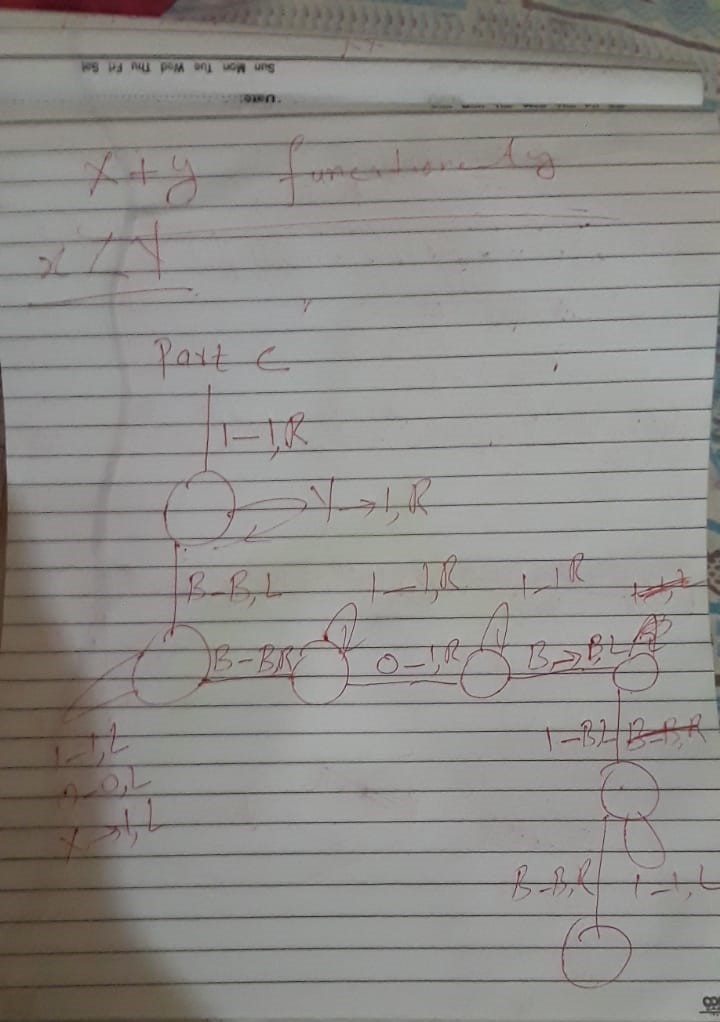 Sun Mon Tue Wed Thu Fri Sat
Date:
x+y functionality
x/y
Part C
1-1,R
Y→1,R
B-B,L
1-1,R
1-1R
B-B,R
0-1,R
B→B,L
1-1,L
0-0,L
X→1,L
1-BL
B-B,R
B-B,R
1-1,L